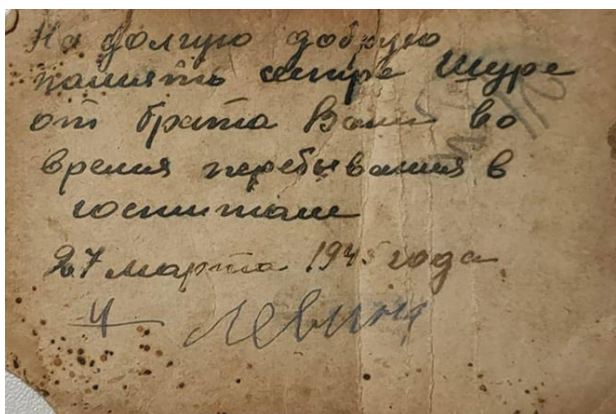 На долгую добрую
память сестре Шуре
от брата Вани во
время перебывания в
госпитале
27 марта 1945 года